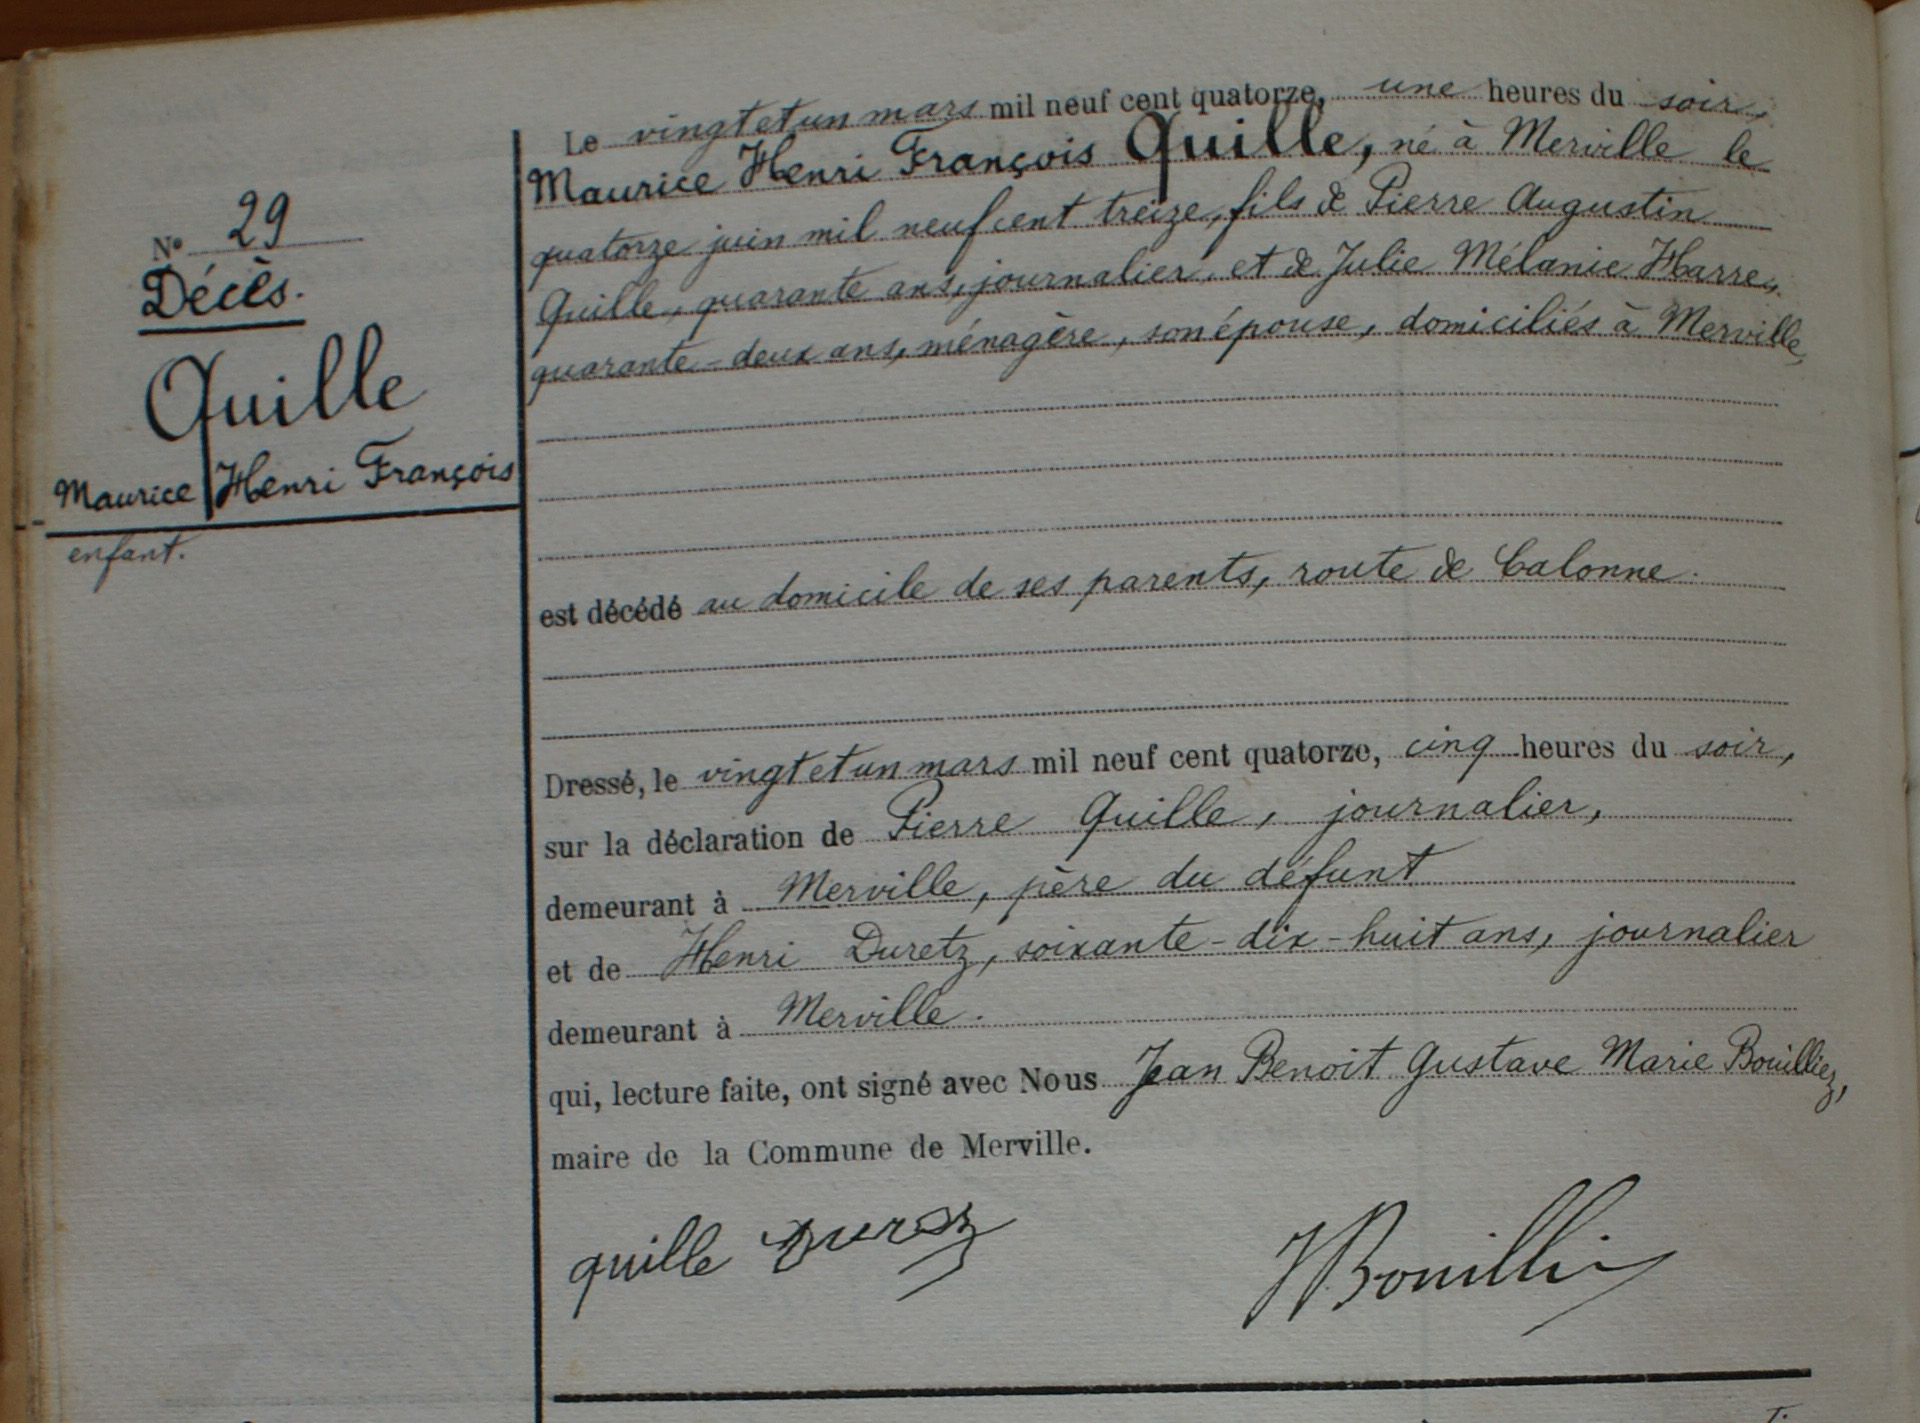 N° 29
Décès.
Quille
Maurice Henri François
enfant.
Le vingt et un mars mil neuf cent quatorze, une heures du soir,
Maurice Henri François Quille, né à Merville le
quatorze juin mil neuf cent treize, fils de Pierre Augustin
Quille, quarante ans, journalier, et de Julie Mélanie Harre,
quarante-deux ans, ménagère, son épouse, domiciliés à Merville,
est décédé au domicile de ses parents, route de Calonne.
Dressé, le vingt et un mars mil neuf cent quatorze, cinq heures du soir,
sur la déclaration de Pierre Quille, journalier,
demeurant à Merville, père du défunt
et de Henri Duretz, soixante-dix-huit ans, journalier
demeurant à Merville.
qui, lecture faite, ont signé avec Nous Jean Benoit Gustave Marie Bouilliez,
maire de la Commune de Merville.
quille